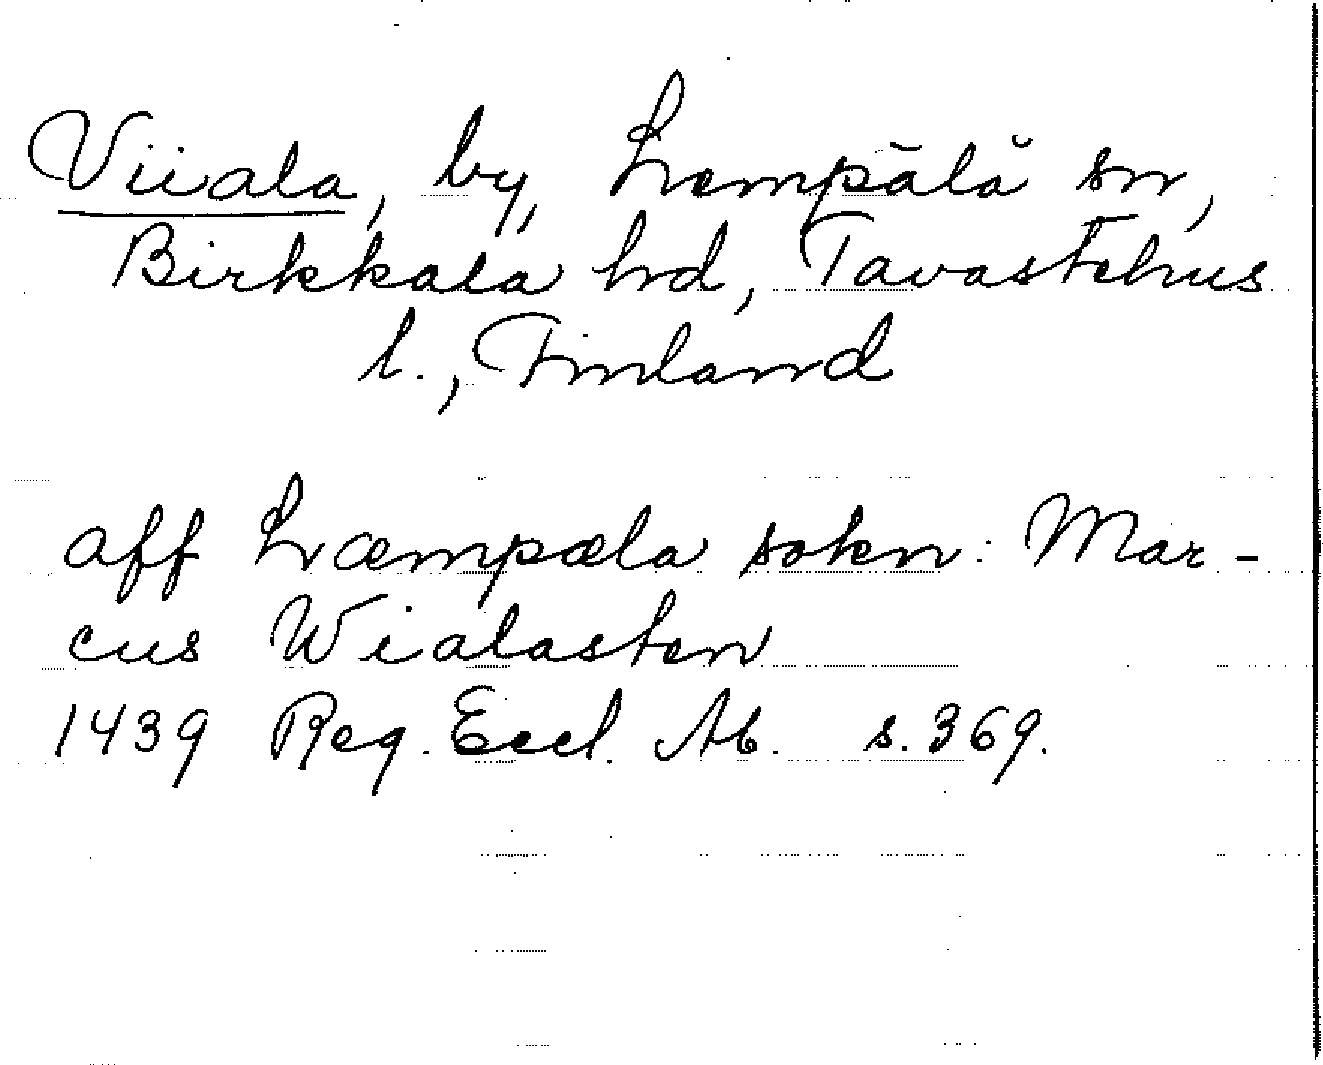 Viiala, by, Lempälä sn,
Birkkala hd, Tavastehus
l., Finland
aff Læmpæla sokn: Mar-
cus Wialasten
1439 Reg. Eccl. Ab. s. 369.